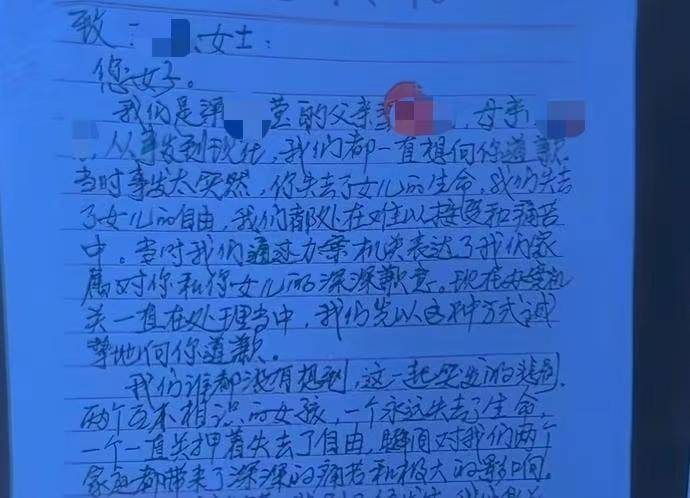 致：女士：
您好。
我们是谭莹的父亲，母亲
，从事发到现在，我们都一直想向你道歉
当时事发太突然，你失去了女儿的生命，我们失去
了女儿的自由，我们都处在难以接受和痛苦
中。当时我们通过办案机关表达了我们家
属对你和你女儿的深深歉意。现在办案机
关一直在处理当中，我们先以这种方式诚
挚地向你道歉。
我们谁都没有想到，这一起突发的悲剧，
两个互不相识的女孩，一个永远失去了生命，
一个一直关押着失去了自由，瞬间对我们两个
家庭都带来了深深的痛苦和极大的影响。